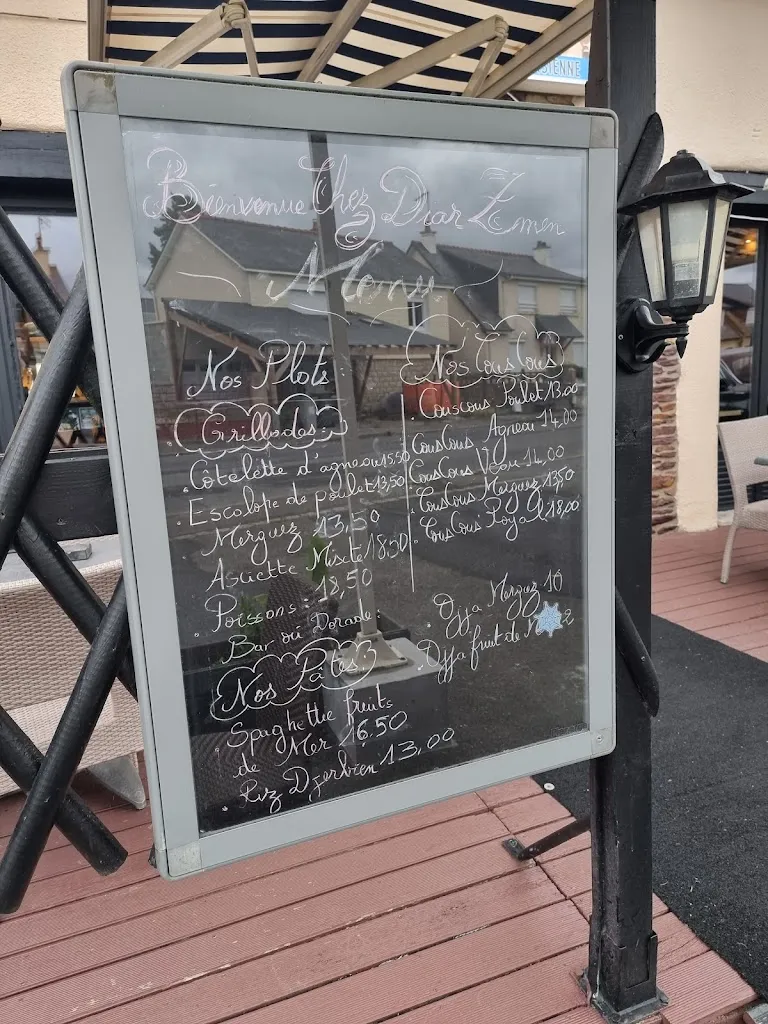 IENNE
Bienvenue Chez Diar Zemen
Menu
Nos Plats :
Grillades :
Côtelette d'agneau 15,50
Escalope de poulet 13,50
Merguez 13,50
Assiette Mixte 18,50
Poissons : 18,50
Bar ou Dorade :
Nos Pâtes :
Spaghettie fruits
de Mer 16.50
Riz Djerbien 13,00
Nos CousCous
Couscous Poulet 13.00
CousCous Agneau 14,00
CousCous Veau 14,00
CousCous Merguez 13,50
CousCous Royal 18,00
Ojja Merguez 10
Ojja fruit de